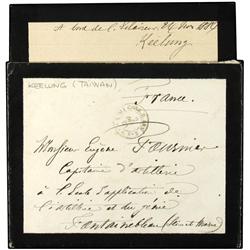 A bord de l'Eclaireur, 24 Nov 1884
Keelung
KEELUNG (TAIWAN)
France.
Monsieur Eugène Fournier
Capitaine d'artillerie
à l'Ecole d'application de
l'artillerie et du génie
Fontainebleau (Seine et Marne)